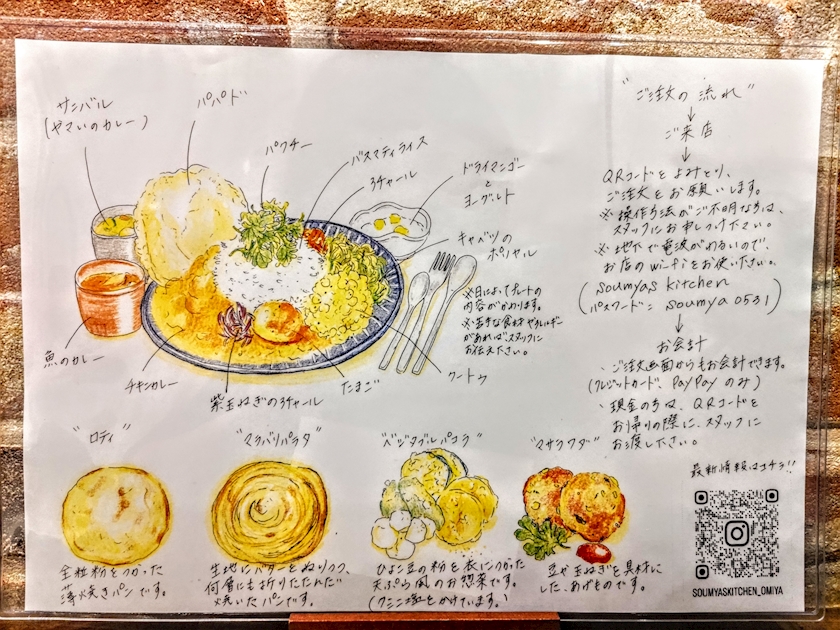 サンバル
(やさいのカレー)
パパド
パクチー
バスマティライス
3チャール
ドライマンゴー
と
ヨーグルト
キャベツの
ポリヤル
※日によってプレートの
内容がかわります。
※苦手な食材やアレルギー
があればスタッフに
お伝え下さい。
魚のカレー
チキンカレー
紫玉ねぎの3チャール
たまご
クートゥ
"ロティ"
全粒粉をつかった
薄焼きパンです。
"マラバリパラタ"
生地にバターをぬりつつ、
何層にも折りたたんだ
焼いたパンです。
"ベジタブルパコラ"
ひよこ豆の粉を衣につかった
天ぷら風のお惣菜です。
(クミン塩をかけています。)
"マサラワダ"
豆や玉ねぎを具材に
した、あげものです。
"ご注文の流れ"
↓
ご来店
↓
QRコードをよみとり、
ご注文をお願いします。
※操作方法がご不明な方は、
スタッフにお申しつけ下さい。
※地下で電波がわるいので、
お店のwi-fiをお使いください。
(soumyas kitchen
パスワード: soumya 0531)
↓
お会計
・ご注文画面からもお会計できます。
(クレジットカード、PayPayのみ)
・現金の方は、QRコードを
お帰りの際に、スタッフに
お渡し下さい。
最新情報はコチラ!!
SOUMYASKITCHEN_OMIYA